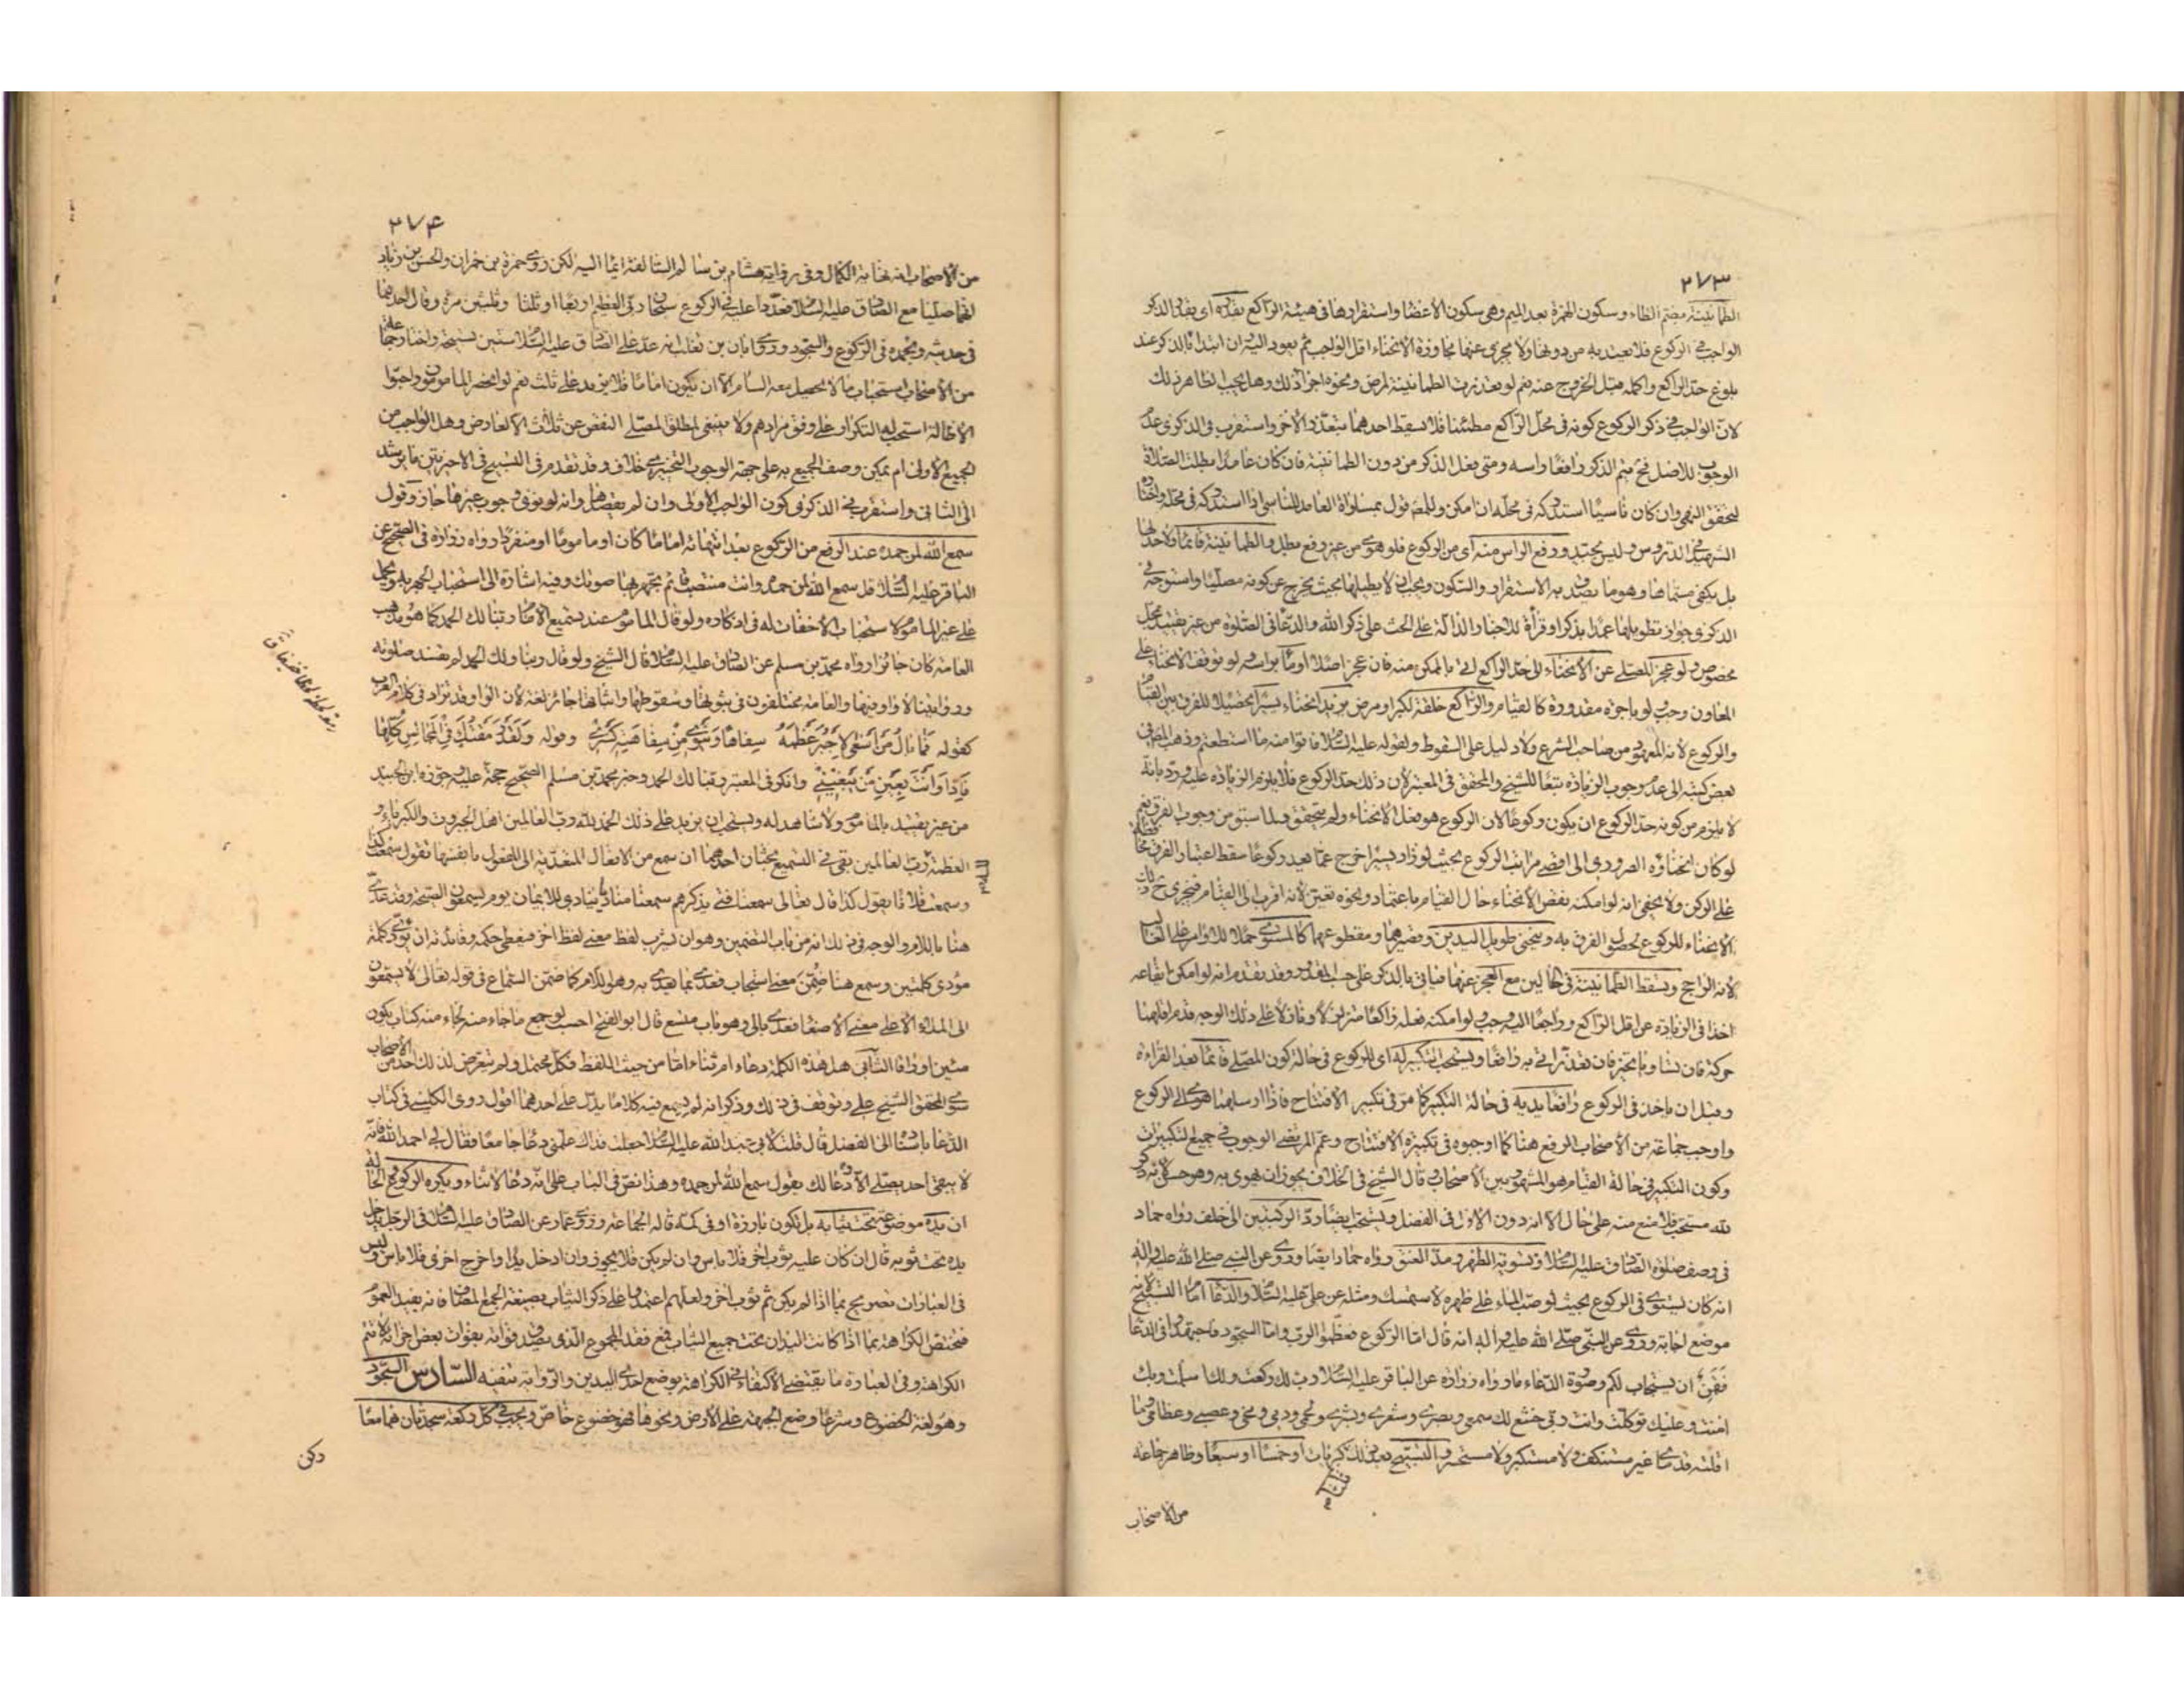 ٢٧٣
الطمأنينة بضم الطاء وسكون الهمزة بعد الميم وهى سكون الأعضاء واستقرارها فى هيئة الراكع بقدره اى بقدر الذكر
الواجب فى الركوع فلا يعتد به من دونها ولا يجزى عنها مجاوزة الانحناء اقل الواجب ثم يعود اليه ان ابتدا بالذكر عند
بلوغ حد الراكع واكمله قبل الخروج عنه نعم لو تعذرت الطمانينة لمرض ونحوه اجزأ ذلك وهل يجب الظاهر ذلك
لان الواجب فى ذكر الركوع كونه فى محل الراكع مطمئنا فلا يسقط احدهما بتعذر الآخر واستقرب فى الذكرى عدم
الوجوب للاصل فح يتم الذكر رافعا راسه ومتى فعل الذكر من دون الطمانينة فان كان عامدا بطلت الصلاة
لتحقق النهى وان كان ناسيا استدركه فى محله ان امكن وللمص قول بمساواة العامد للناسى اذا استدركه فى محله واختاره
الشهيد فى الدروس وليس بجيد ورفع الراس منه اى من الركوع فلو هوى من غير رفع بطل والطمانينة قائما ولا حد لها
بل يكفى مسماها وهو ما يصدق به الاستقرار والسكون ويجب ان لا يطيلها بحيث يخرج عن كونه مصليا واستوجه فى
الذكرى جواز تطويلها عمدا بذكر او قرأة للاخبار الدالة على الحث على ذكر الله والدعاء فى الصلوة من غير تقييد بمحل
مخصوص ولو عجز المصلى عن الانحناء الى حد الراكع اتى بالممكن منه فان عجز اصلا اوما براسه ولو توقف الانحناء على
المعاون وجب ولو باجرة مقدورة كالقيام والراكع خلقة لكبر او مرض يزيد انحناء يسيرا تحصيلا للفرق بين القيام
والركوع لأنه المعهود من صاحب الشرع ولا دليل على السقوط ولقوله عليه السلام فاتوا منه ما استطعتم وذهب المص فى
بعض كتبه الى عدم وجوب الزيادة تبعا للشيخ والمحقق فى المعتبر لأن ذلك حد الركوع فلا يلزم الزيادة عليه ورد بانه
لا يلزم من كونه حد الركوع ان يكون ركوعا لان الركوع هو فعل الانحناء ولم يتحقق وبما سبق من وجوب الفرق نعم
لو كان انحناؤه الضرورى الى اقصى مراتب الركوع بحيث لو زاد يسيرا خرج عما يعد ركوعا سقط اعتبار الفرق محافظة
على الركن ولا يخفى انه لو امكنه نقص الانحناء حال القيام باعتماد ونحوه تعين لأنه اقرب الى القيام فيجزى ح ذلك
الانحناء للركوع لحصول الفرق به وينحنى طويل اليدين وقصيرهما ومقطوعهما كالمستوى حملا للاوامر على الغالب
لأنه الراجح ويسقط الطمأنينة فى الحالين مع العجز عنها فياتى بالذكر على حسب المقدور وقد تقدم انه لو امكن ايقاعه
اخذا فى الزيادة عن اقل الراكع وراجعا اليه وجب ولو امكنه فعله راكعا متزلزلا وفاتلا على ذلك الوجه قدم اقلهما
حركة فان تساويا تخير فان تعذر اتى به رافعا ويستحب التكبير له اى للركوع فى حالة كون المصلى قائما بعد القراءة
وقبل ان ياخذ فى الركوع رافعا يديه فى حالة التكبير كما مر فى تكبير الافتتاح فاذا ارسلهما هوى الى الركوع
واوجب جماعة من الأصحاب الرفع هنا كما اوجبوه فى تكبيرة الافتتاح وعمم المرتضى الوجوب فى جميع التكبيرات
وكون التكبير فى حالة القيام هو المشهور بين الأصحاب وقال الشيخ فى الخلاف يجوز ان يهوى به وهو حسن لانه ذكر
لله مستحب فلا منع منه على حال الا انه دون الاول فى الفضل ويستحب ايضا رد الركبتين الى خلف رواه حماد
فى وصف صلوة الصادق عليه السلام وتسوية الظهر ومد العنق رواه حماد ايضا وروى عن النبى صلى الله عليه واله
انه كان يستوى فى الركوع بحيث لو صب الماء على ظهره لاستمسك ومثله عن على عليه السلام والدعاء امام التسبيح لانه
موضع اجابة وروى عن النبى صلى الله عليه واله انه قال اما الركوع فعظموا الرب واما السجود فاجتهدوا فى الدعاء
فقمن ان يستجاب لكم وصورة الدعاء ما رواه زرارة عن الباقر عليه السلام رب لك ركعت ولك اسلمت وبك
امنت وعليك توكلت وانت ربى خشع لك سمعى وبصرى وشعرى وبشرى ولحمى ودمى ومخى وعصبى وعظامى وما
اقلته قدماى غير مستنكف ولا مستكبر ولا مستحسر والتسبيح بعد ذلك كبريات او خمسا او سبعا وظاهر جماعة
من الأصحاب
٢٧٤
من الأصحاب انه نهاية الكمال وفى رواية هشام بن سالم السالفة ايماء اليه لكن روى حمزة بن حمران والحسن بن زياد
انهما صليا مع الصادق عليه السلام فعددا عليه فى الركوع سبحان ربى العظيم اربعا او ثلثا وثلثين مرة وقال احدهما
فى حديثه وبحمده فى الركوع والسجود وروى ابان بن تغلب انه عد على الصادق عليه السلام ستين تسبيحة واختار جماعة
من الأصحاب استحباب ما لا يحصل معه السام الا ان يكون اماما فلا يزيد على ثلث نعم لو انحصر المامومون واحبوا
الاطالة استحب له التكرار على وفق مرادهم ولا ينبغى لمطلق المصلى النقص عن ثلاث الا لعارض وهل الواجب من
الجميع الاولى ام يمكن وصف الجميع به على جهة الوجوب التخييرى خلاف وقد تقدم فى التسبيح فى الاخيرتين ما يرشد
الى الثانى واستقرب فى الذكرى كون الواجب الاولى وان لم يقصدها وانه لو نوى وجوب غيرها جاز وقول
سمع الله لمن حمده عند الرفع من الركوع بعد انتهائه اماما كان او ماموما او منفردا رواه زرارة فى الصحيح عن
الباقر عليه السلام قل سمع الله لمن حمده وانت منتصب قائم تجهر بها صوتك وفيه اشارة الى استحباب الجهر به ويحمل
على غير الماموم لاستحباب الاخفات له فى اذكاره ولو قال الماموم عند تسميع الامام ربنا لك الحمد كما هو مذهب
العامة كان جائزا رواه محمد بن مسلم عن الصادق عليه السلام قال الشيخ ولو قال ربنا ولك الحمد لم تفسد صلوته
وروايتنا لا واو فيها والعامة مختلفون فى ثبوتها وسقوطها واثباتها جائز لغة لأن الواو قد تزاد فى كلام العرب
كقوله
وقوله ولقد رمقتك فى المجالس كلها
فاذا وانت تعين من يبغينى وانكر فى المعتبر ربنا لك الحمد وخبر محمد بن مسلم الصحيح حجة عليه وجوزه ابن الجنيد
من غير تقييد بالماموم ولا شاهد له ويستحب ان يزيد على ذلك الحمد لله رب العالمين اهل الجبروت والكبرياء و
العظمة لله رب العالمين بقى فى التسميع بحثان احدهما ان سمع من الافعال المتعدية الى المفعول بانفسها تقول سمعت كذا
وسمعت فلانا يقول كذا قال تعالى سمعنا فتى يذكرهم سمعنا مناديا ينادى للايمان يوم يسمعون الصيحة وقد عدى
هنا باللام والوجه فى ذلك انه من باب التضمين وهو ان يشرب لفظ معنى لفظ اخر فيعطى حكمه وفائدته ان تودى كلمة
مؤدى كلمتين وسمع هنا ضمن معنى استجاب فعدى بما يعدى به وهو اللام كما ضمن السماع فى قوله تعالى لا يسمعون
الى الملاء الاعلى معنى الاصغاء فعدى بالى وهو باب متسع قال ابو الفتح احسب لو جمع ما جاء منه لجاء منه كتاب يكون
مئين اوراقا الثانى هل هذه الكلمة دعاء ام ثناء اما من حيث اللفظ فكل محتمل ولم يتعرض لذلك احد من الأصحاب
سوى المحقق الشيخ على وتوقف فى ذلك وذكر انه لم يسمع فيه كلاما يدل على احدهما اقول روى الكلينى فى كتاب
الدعاء باسناده الى المفضل قال قلت لابى عبد الله عليه السلام جعلت فداك علمنى دعاء جامعا فقال لى احمد الله فانه
لا يبقى احد يصلى الا دعا لك يقول سمع الله لمن حمده وهذا نص فى الباب على انه دعاء لا ثناء ويكره الركوع له
ان يده موضوعة تحت ثيابه بل تكون بارزة او فى كمه قاله الجماعة وروى عمار عن الصادق عليه السلام فى الرجل يدخل
يده تحت ثوبه قال ان كان عليه ثوب اخر فلا باس وان لم يكن فلا يجوز وان ادخل يدا واخرج اخرى فلا باس وليس
فى العبارات تصريح بما اذا لم يكن ثم ثوب اخر ولعلهم اعتمدوا على ذكر الثياب بصيغة الجمع المضاف فانه يفيد العموم
فتختص الكراهة بما اذا كانت اليدان تحت جميع الثياب فمع فقد المجموع الذى يصدق فواته بفوات بعض اجزائه لا تتم
الكراهة وفى العبارة ما يقتضى الاكتفاء فى الكراهة بوضع احدى اليدين والرواية تنفيه السادس السجود
وهو لغة الخضوع وشرعا وضع الجبهة على الأرض ونحوها فهو خضوع خاص ويجب فى كل ركعة سجدتان هما معا
ركن